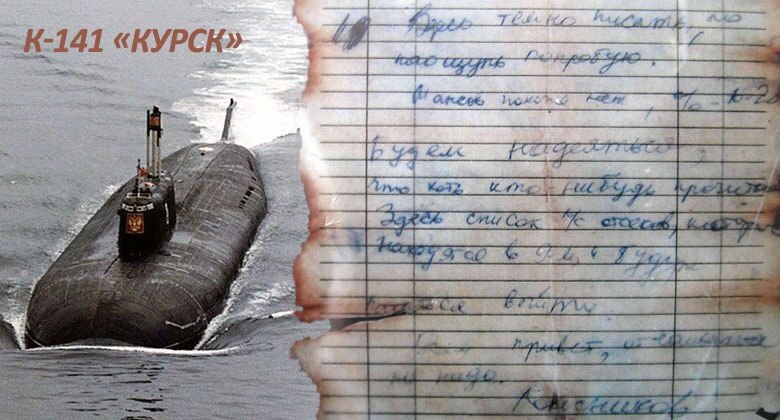 К-141 «КУРСК»
Здесь темно писать, но
наощупь попробую.
Шансов похоже нет, %-10-20
Будем надеяться,
что хоть кто нибудь прочитает
Здесь список л/с отсеков, которые
находятся в 9-м и будут
выйти.
привет, отчаиваться
не надо.
Колесников